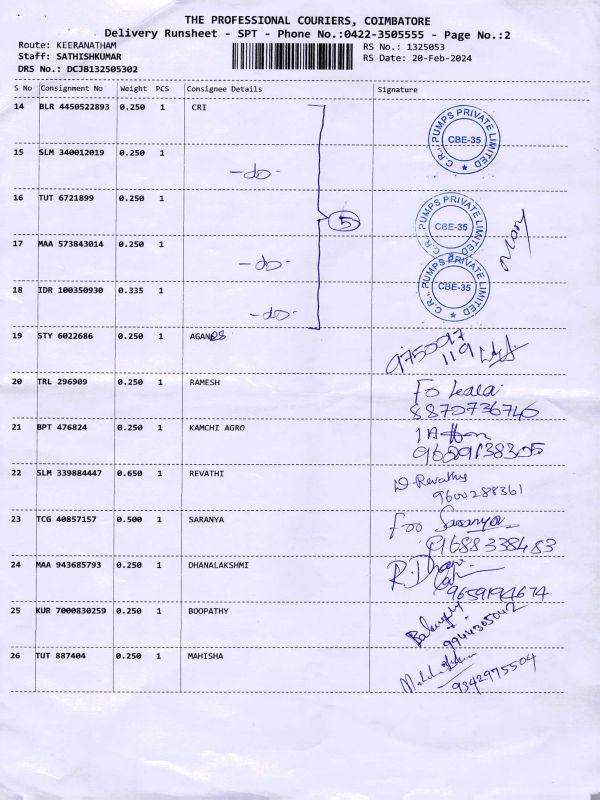 THE PROFESSIONAL COURIERS, COIMBATORE
Delivery Runsheet - SPT - Phone No.:0422-3505555 - Page No.:2
Route: KEERANATHAM
RS No.: 1325053
Staff: SATHISHKUMAR
RS Date: 20-Feb-2024
DRS No.: DCJB132505302
S No Consignment No Weight PCS Consignee Details Signature
14 BLR 4450522893 0.250 1 CRI
C.R.I. PUMPS PRIVATE LIMITED CBE-35
15 SLM 340012019 0.250 1
-do-
16 TUT 6721899 0.250 1
5
C.R.I. PUMPS PRIVATE LIMITED CBE-35
Mary
17 MAA 573843014 0.250 1
-do-
C.R.I. PUMPS PRIVATE LIMITED CBE-35
18 IDR 100350930 0.335 1
-do-
19 STY 6022686 0.250 1
119
20 TRL 296909 0.250 1 RAMESH
8870736740
21 BPT 476824 0.250 1 KAMCHI AGRO
9629138305
22 SLM 339884447 0.650 1 REVATHI
D. Revathy
9600288361
23 TCG 40857157 0.500 1 SARANYA
for Saranya
9688338483
24 MAA 943685793 0.250 1 DHANALAKSHMI
9659194674
25 KUR 7000830259 0.250 1 BOOPATHY
9944305042
26 TUT 887404 0.250 1 MAHISHA
9342975504